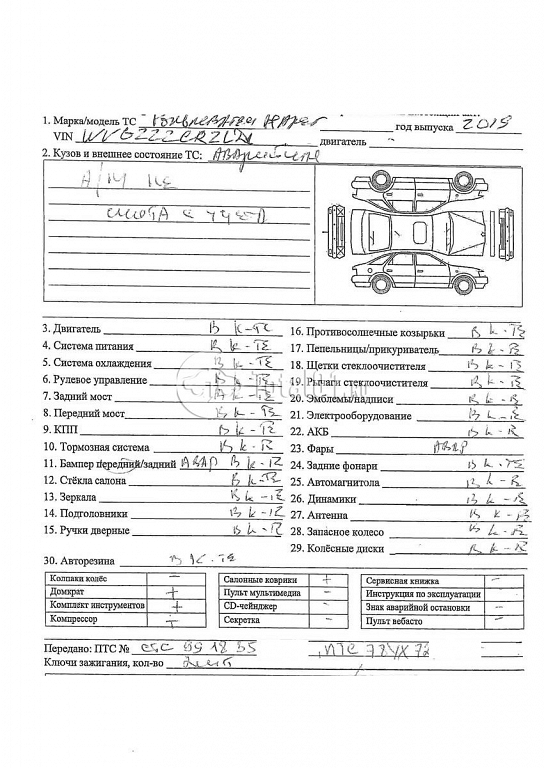 1. Марка/модель ТС год выпуска 2019
VIN двигатель -
2. Кузов и внешнее состояние ТС:
А/М не
3. Двигатель В К-ТЕ
4. Система питания В К-ТЕ
5. Система охлаждения В К-ТЕ
6. Рулевое управление В К-ТЕ
7. Задний мост В К-ТЕ
8. Передний мост В К-ТЕ
9. КПП В К-ТЕ
10. Тормозная система В К-ТЕ
11. Бампер передний/задний АВАР В К-ТЕ
12. Стёкла салона В К-ТЕ
13. Зеркала В К-ТЕ
14. Подголовники В К-ТЕ
15. Ручки дверные В К-ТЕ
16. Противосолнечные козырьки В К-ТЕ
17. Пепельницы/прикуриватель В К-ТЕ
18. Щетки стеклоочистителя В К-ТЕ
19. Рычаги стеклоочистителя В К-ТЕ
20. Эмблемы/надписи В К-ТЕ
21. Электрооборудование В К-ТЕ
22. АКБ В К-ТЕ
23. Фары АВАР
24. Задние фонари В К-ТЕ
25. Автомагнитола В К-ТЕ
26. Динамики В К-ТЕ
27. Антенна В К-ТЕ
28. Запасное колесо В К-ТЕ
29. Колёсные диски В К-ТЕ
30. Авторезина В К-ТЕ
Колпаки колёс -
Домкрат +
Комплект инструментов +
Компрессор +
Салонные коврики +
Пульт мультимедиа -
CD-чейнджер -
Секретка -
Сервисная книжка -
Инструкция по эксплуатации -
Знак аварийной остановки -
Пульт вебасто -
Передано: ПТС № СТС 99 18 55
Ключи зажигания, кол-во